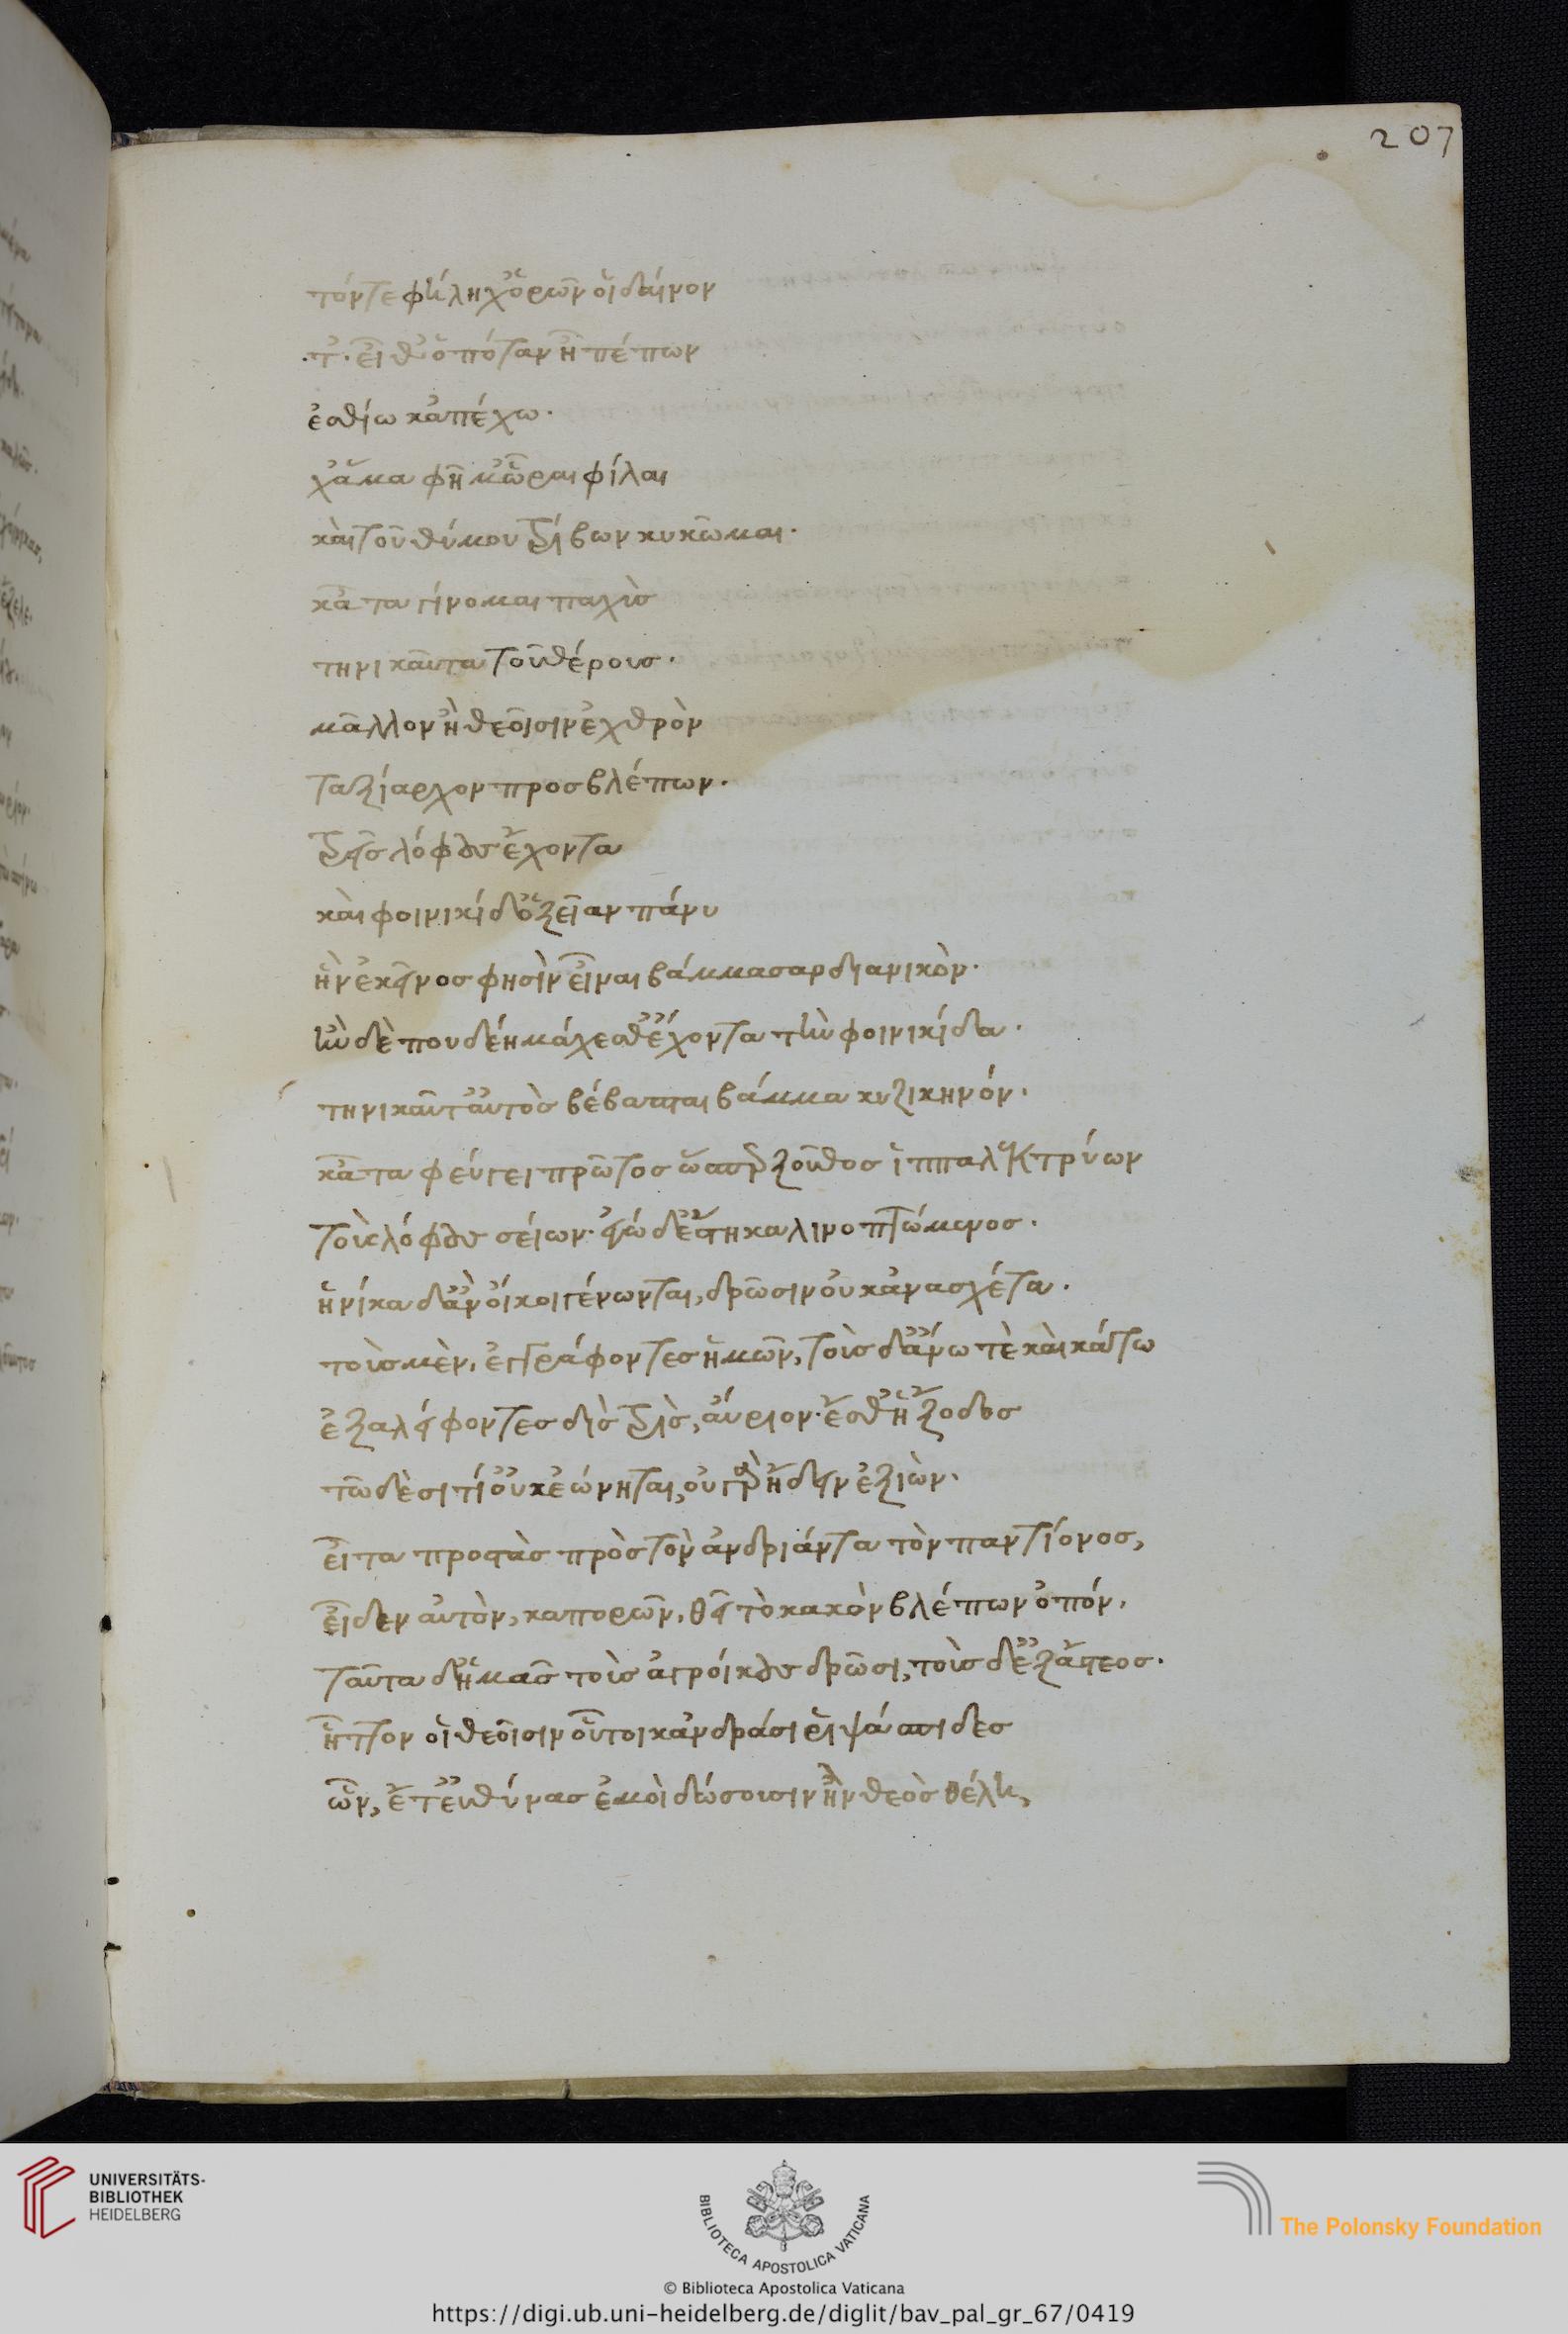 τόντε φήληχ' ὁρῶν οἰδαίνον
·τ'· εἶθ' ὁπόταν ἦ πέπων
ἐσθίω κἀπέχω·
χἅμα φῆμ' ὧραι φίλαι
καὶ τοῦ θύμου τρίβων κυκῶμαι·
κᾆτα γίνομαι παχὺς
τηνικαῦτα τοῦ θέρους·
μᾶλλον ἢ θεοῖσιν ἐχθρὸν
ταξίαρχον προσβλέπων·
τρεῖς λόφους ἔχοντα
καὶ φοινικίδ' ὀξεῖαν πάνυ
ἣν ἐκεῖνος φησὶν εἶναι βάμμα σαρδιανικὸν·
ἢν δὲ που δέη μάχεσθ' ἔχοντα τὴν φοινικίδα·
τηνικαῦτ' αὐτὸς βέβαπται βάμμα κυζικηνόν·
κᾆτα φεύγει πρῶτος ὥσπερ ξοῦθος ἱππαλεκτρύων
τοὺς λόφους σείων· ἐγώ δ' ἕστηκα λινοπτώμενος·
ἡνίκα δ' ἂν οἴκοι γένωνται, δρῶσιν οὐκ ἀνασχέτα·
τοὺς μὲν, ἐγγράφοντες ἡμῶν, τοὺς δ' ἄνω τὲ καὶ κάτω
ἐξαλείφοντες δὶς τρὶς, αύριον· ἔσθ' ἡ 'ξοδος
τῶ δὲ σιτί' οὐκ ἐώνηται, οὐ γὰρ ἤδειν ἐξιὼν·
εἶτα προστὰς πρὸς τὸν ἀνδριάντα τὸν παντίονος,
εἶδεν αὐτὸν, καπορῶν, θεῖ τὸ κακὸν βλέπων ὀπόν,
ταῦτα δ' ἡμᾶς τοὺς ἀγροίκους δρῶσι, τοὺς δ' ἐξ ἄστεος·
ἧττον οἱ θεοῖσιν οὗτοι κἀνδράσι ῥιψάσπιδες
ὧν, ἔτ' εὐθύνας ἐμοὶ δώσουσιν ἢν θεὸς θέλη,
207
UNIVERSITÄTS-
BIBLIOTHEK
HEIDELBERG
BIBLIOTECA APOSTOLICA VATICANA
The Polonsky Foundation
© Biblioteca Apostolica Vaticana
https://digi.ub.uni-heidelberg.de/diglit/bav_pal_gr_67/0419